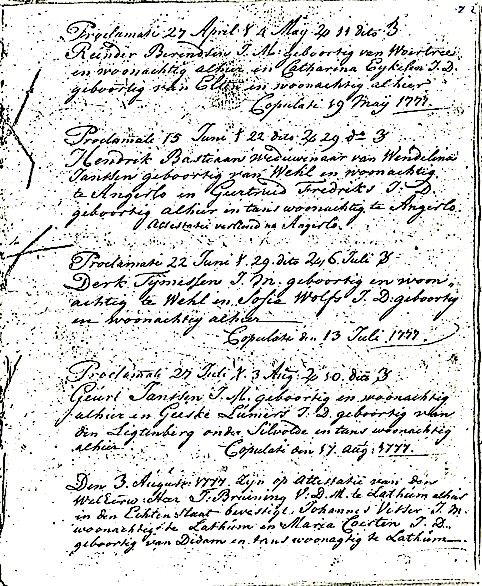 Proclamati 27 April 1 4 May 2 11 dito 3
Reinder Berendsen J. M. geboortig van
en woonachtig alhier en Catharina Eykelen J. D.
geboortig van Elten en woonachtig alhier
Copulati 19 Maij 1777.
Proclamati 15 Juni 1 22 dito 2 29 do 3
Hendrik Bastiaan weduwenaar van Wendelina
Janssen geboortig van Wehl en woonachtig
te Angerlo en Geertruid Fredriks J. D.
geboortig alhier en tans woonachtig te Angerlo.
Attestatie verleend na Angerlo.
Proclamati 22 Juni 1 29 dito 2 6 Juli 3
Derk Tijnissen J. M. geboortig en woon„
achtig te Wehl en Sofia Wolfs J. D. geboortig
en woonachtig alhier
Copulati den 13 Juli 1777.
Proclamati 27 Juli 1 3 Aug. 2 10. dito 3
Geurt Janssen J. M. geboortig en woonachtig
alhier en Geeske Lumers J. d. geboortig van
den Ligtenberg onder Silvolde en tans woonachtig
alhier.
Copulati den 17. Aug: 1777.
Den 3. Augusti 1777. zijn op Attestatie van den
WelEerw: Heer J: Bruining V. D. M. te Lathum alhier
in den Echten Staat bevestigt, Johannes Visser J. M.
woonachtig te Lathum en Maria Coerten J. D.
geboortig van Didam en tans woonagtig te Lathum.